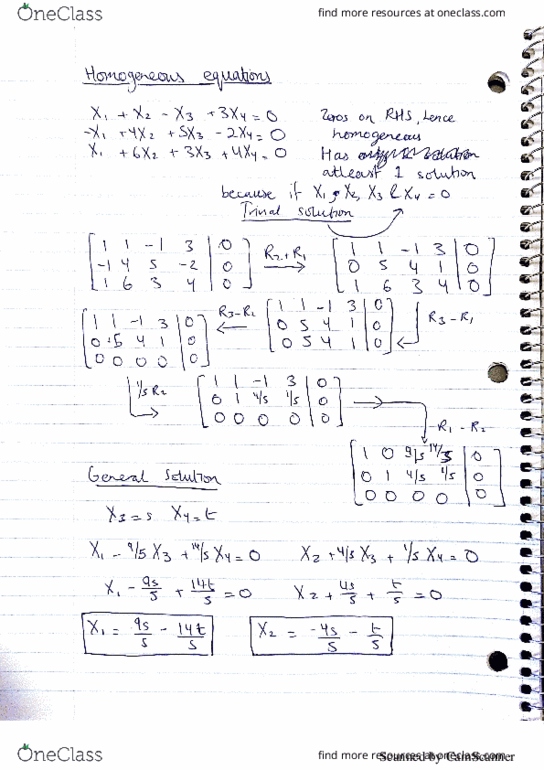 OneClass
find more resources at oneclass.com
Homogeneous equations
X₁ + X₂ - X₃ + 3X₄ = 0 Zeros on RHS, hence
-X₁ + 4X₂ + 5X₃ - 2X₄ = 0 homogeneous
X₁ + 6X₂ + 3X₃ + 4X₄ = 0 Has
atleast 1 solution
because if X₁, X₂, X₃ & X₄ = 0
Trivial solution
[1 1 -1 3 | 0] [1 1 -1 3 | 0]
[-1 4 5 -2 | 0] R₂+R₁ → [0 5 4 1 | 0]
[1 6 3 4 | 0] [1 6 3 4 | 0]
[1 1 -1 3 | 0] R₃-R₂ ← [1 1 -1 3 | 0]
[0 5 4 1 | 0] [0 5 4 1 | 0] R₃-R₁
[0 0 0 0 | 0] [0 5 4 1 | 0]
1/5 R₂ [1 1 -1 3 | 0]
[0 1 4/5 1/5 | 0] →
[0 0 0 0 | 0] R₁ - R₂
[1 0 9/5 14/5 | 0]
[0 1 4/5 1/5 | 0]
[0 0 0 0 | 0]
General solution
X₃ = s X₄ = t
X₁ - 9/5 X₃ + 14/5 X₄ = 0 X₂ + 4/5 X₃ + 1/5 X₄ = 0
X₁ - 9s/5 + 14t/5 = 0 X₂ + 4s/5 + t/5 = 0
X₁ = 9s/5 - 14t/5 X₂ = -4s/5 - t/5
OneClass
find more resources at oneclass.com
Scanned by CamScanner